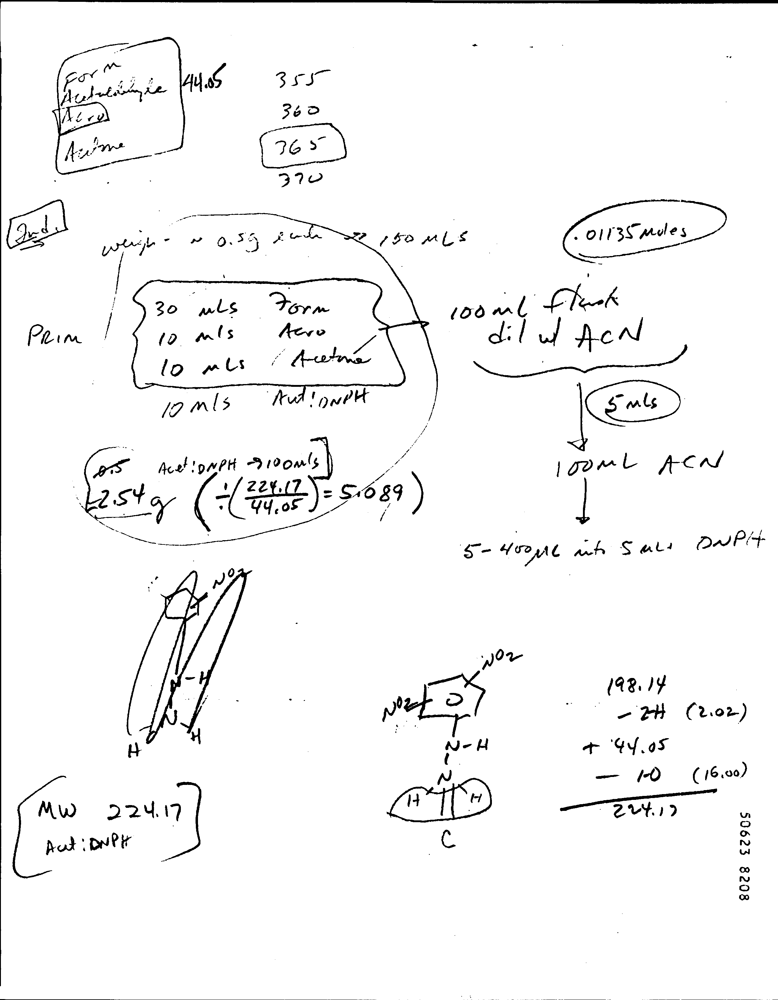 Form
Acetaldehyde 44.05 355
Acro 360
Acetone 365
370
2nd.
weigh ~ 0.5g each → 150 MLS
.01135 moles
PRIM
30 mLs Form
10 mls Acro
10 mLs Acetone
10 mls Acet:DNPH
100mL flask
dil w/ ACN
5 mLs
100ML ACN
5-400ML into 5 mLs DNPH
0.5 Acet:DNPH → 100mls
2.54 g (÷(224.17/44.05) = 5.089)
NO2
N-H
N
H H
MW 224.17
Acet:DNPH
NO2
NO2
N-H
N
H H
C
198.14
- 2H (2.02)
+ 44.05
- 1O (16.00)
224.17
50623 8208